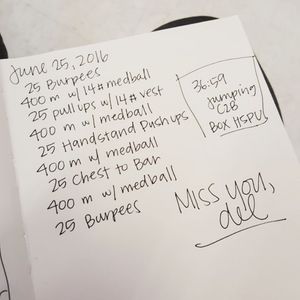 June 25, 2016
25 Burpees
400 m w/ 14# medball
25 pull ups w/ 14# vest
400 m w/ medball
25 Handstand Pushups
400 m w/ medball
25 Chest to Bar
400 m w/ medball
25 Burpees
36:59
Jumping
C2B
BOX HSPU
MISS YOU,
del